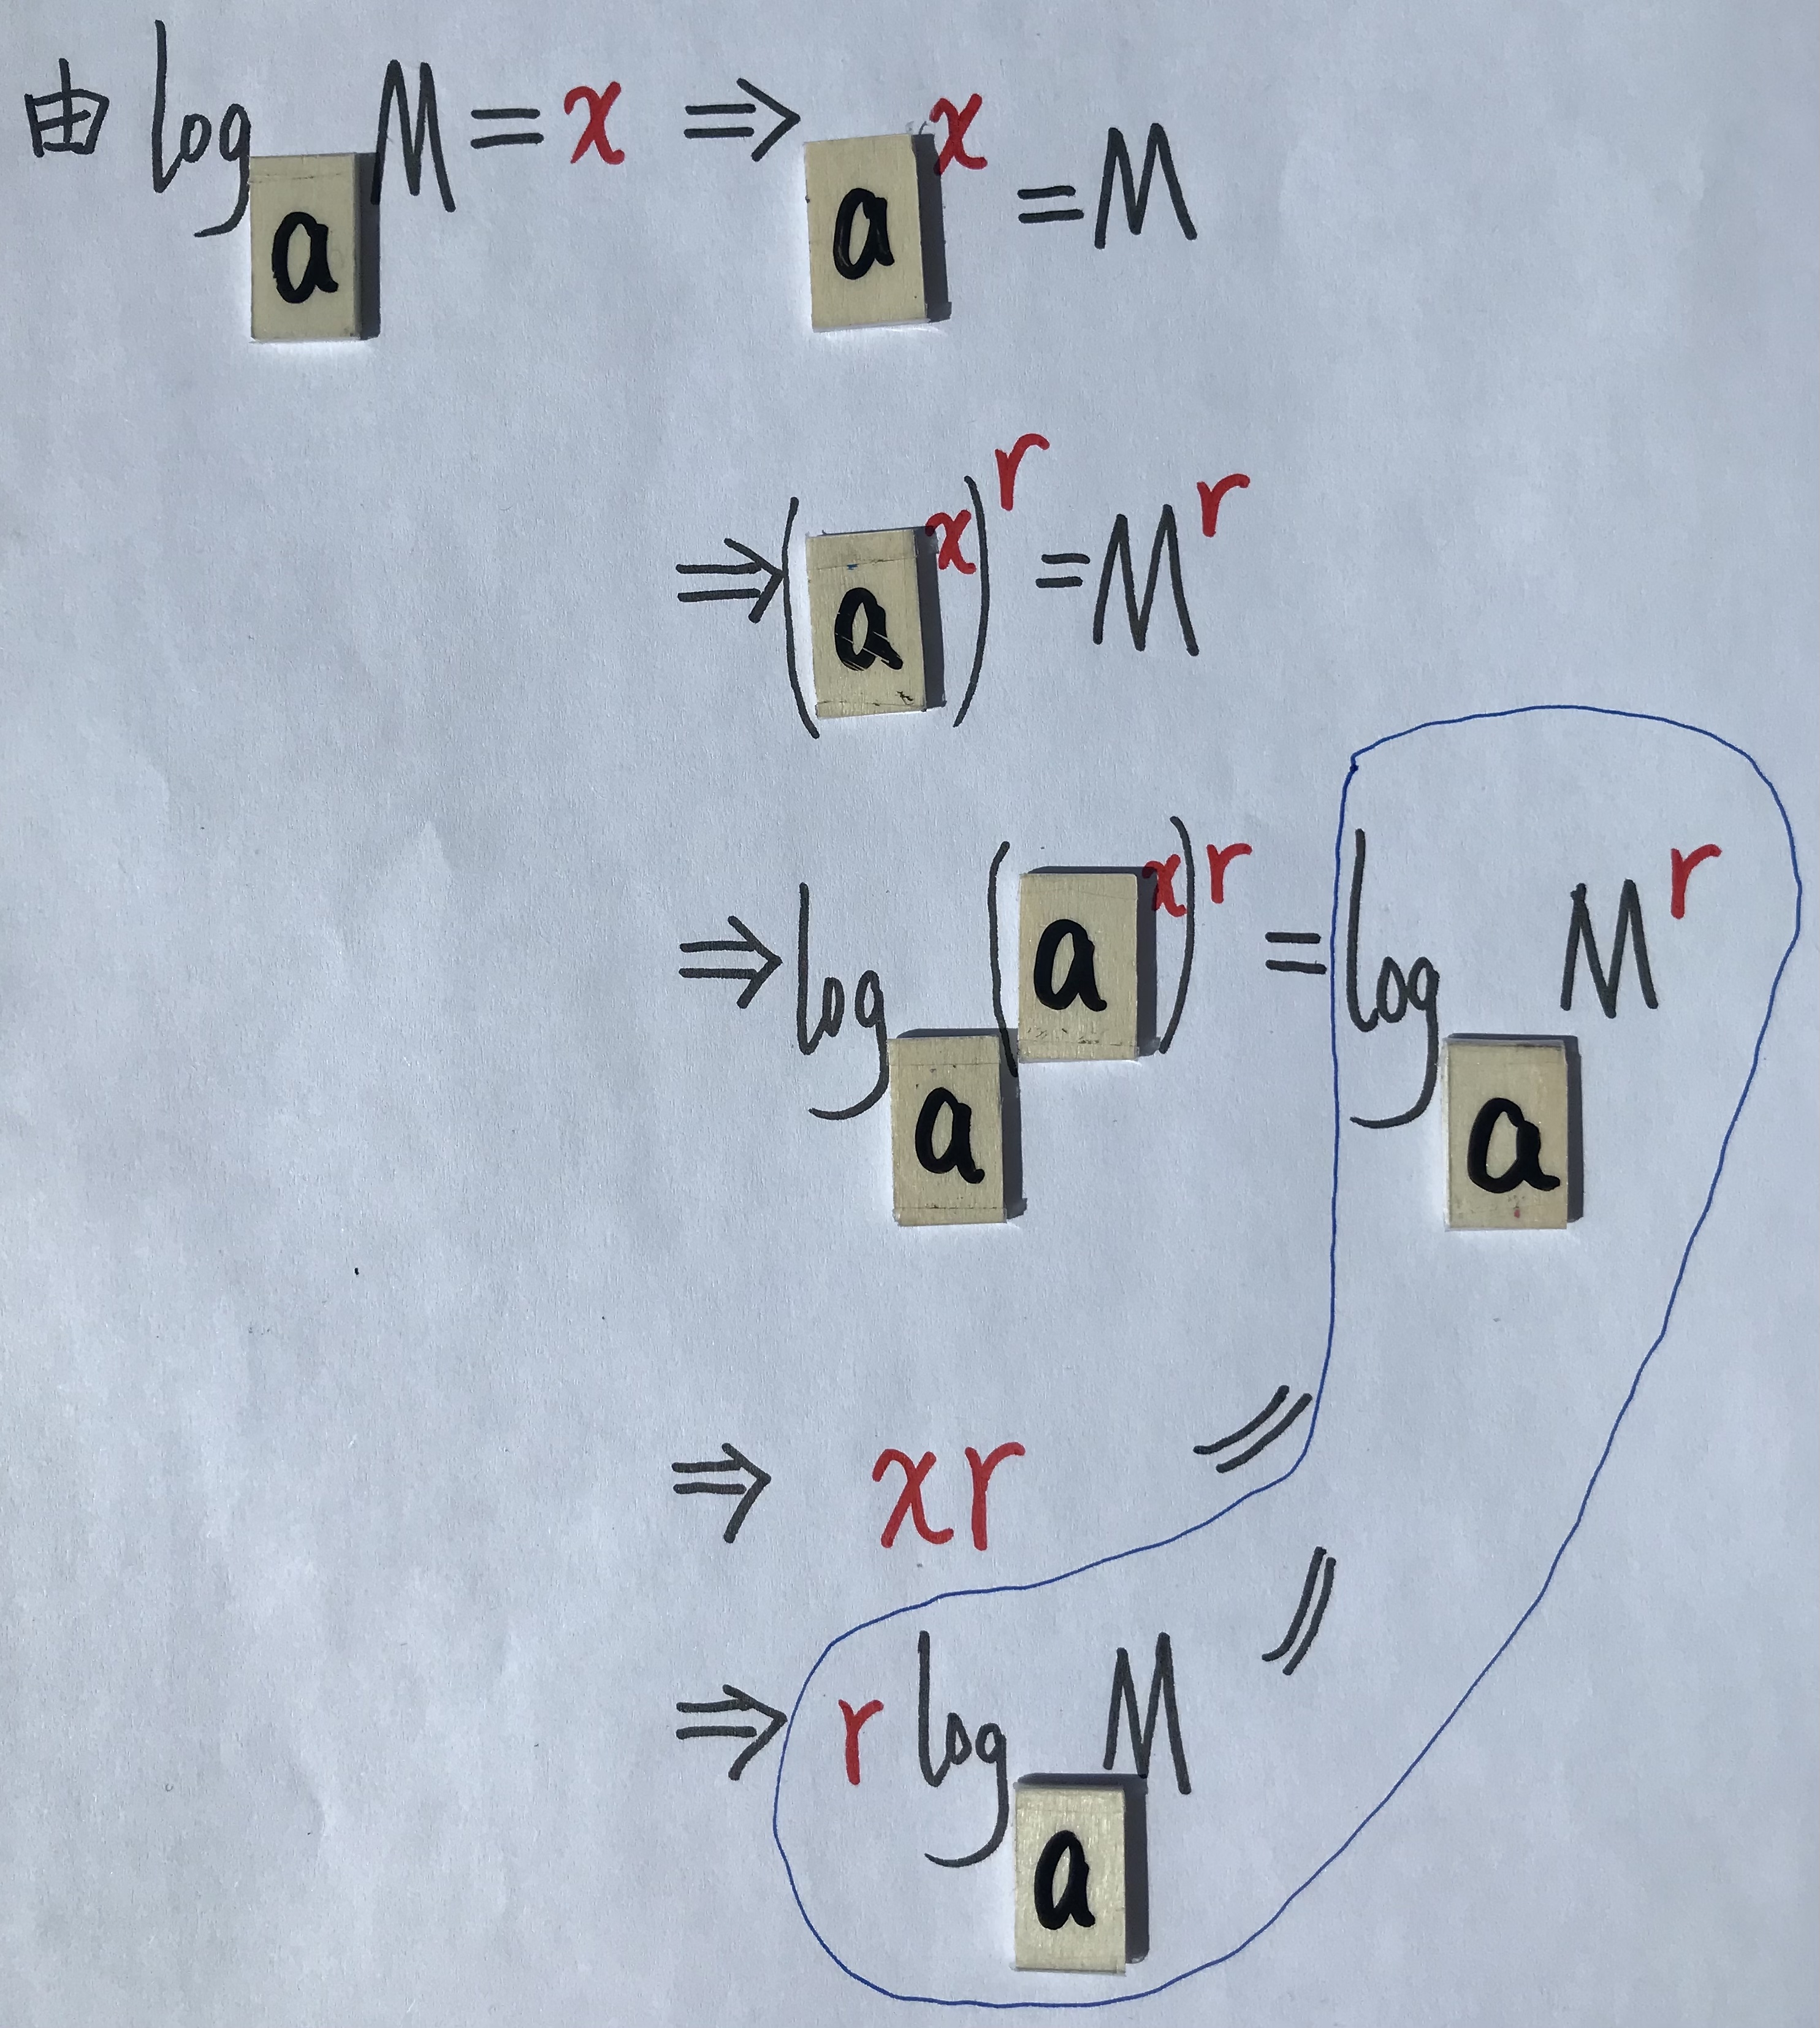 由 log a M = x ⇒ a^x = M
⇒ (a^x)^r = M^r
⇒ log a (a^x)^r = log a M^r
⇒ xr =
⇒ r log a M =